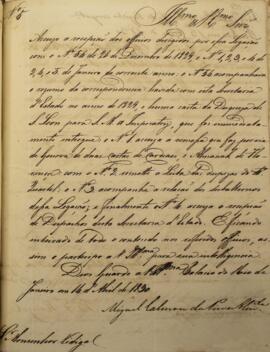 Illmo e Rmo Snr.
Accuzo a recepção dos officios dirigidos por essa Legação
com o Nº 54 de 24 de Dezembro de 1829, e Nº 1, 2, 3, e 4 de
2, 4, e 5 de Janeiro do corrente anno. o Nº 54 acompanhava
o resumo da correspondencia havida com esta Secretaria
d'Estado no anno de 1829, e huma carta da Duqueza de
S. Leon para S. M. a Imperatriz, que foi immediatamente
entregue, o Nº 1 a remessa que fez
de huma de duas Cartas de e Almanak de
com o Nº 2, remette a conta das despezas do
Quartel, e o Nº 3 acompanha a relação dos
dessa Legação, e finalmente Nº 4 accuza a recepção
de Despachos desta Secretaria d'Estado. E ficando
inteirado de todo o contendo nos referidos officios, as-
sim o participo a V. Illma para sua intelligencia.
Deos Guarde a V. Illma Palacio do Rio de
Janeiro em 14 de Abril de 1830
Miguel Calmon du Pin e Almda
Snr. Monsenhor Vidigal